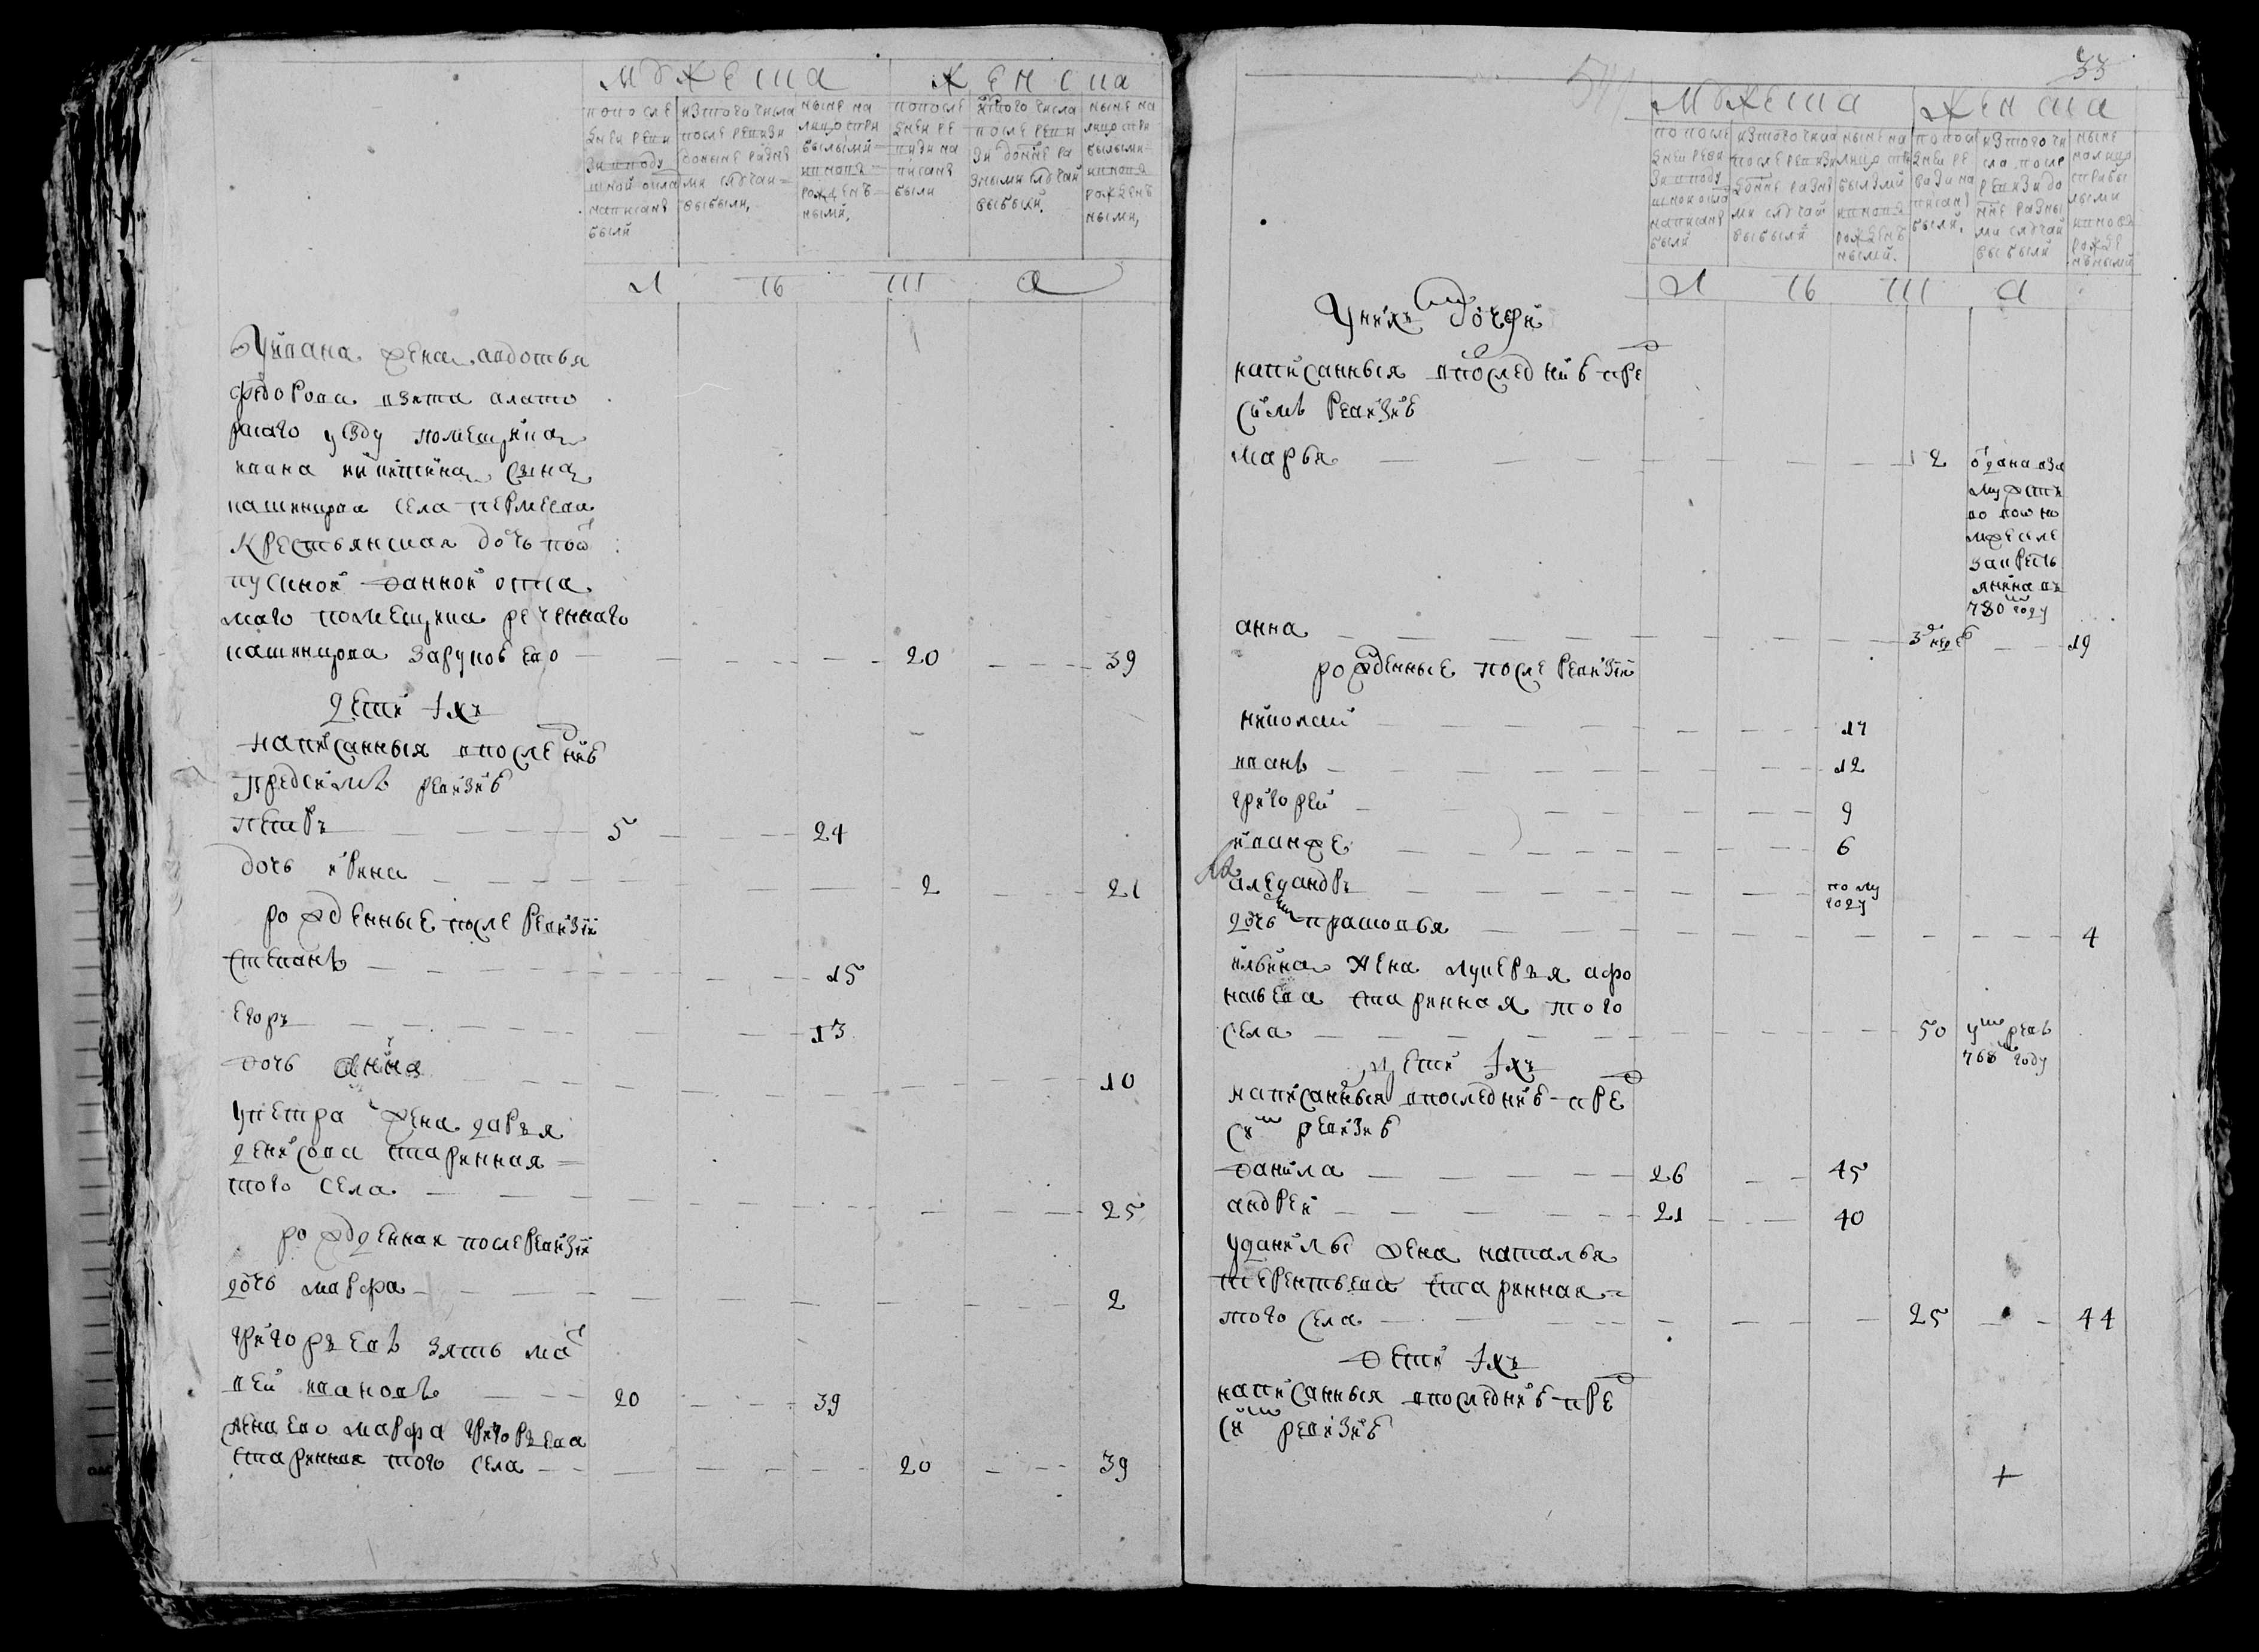 мужеска
женска
попосле
дней реви
зи вподу
шной окла
написано
были
изтого числа
после ревизи
доныне разны
ми случаи
выбыли,
ныне на
лицо спри
былыми
ивновь
рожденъ
ными,
попосле
дней ре
визи на
писано
были
изтого числа
после реви
зи доныне ра
зными случаи
выбыли,
ныне на
лицо спри
былыми
ивновь
рожденъ
ными,
л
Уивана жена авдотья
федорова взята алато
рскаго уезду помещика
ивана никитина сына
кашкарова села
крестьянская дочь поот
пускной данной отса
маго помещика реченнаго
кашкарова зарукою ево 20 39
дети iхъ
написанныя впоследней
предсимъ ревизиѣ
петръ 5 24
дочь ирина 2 21
рожденные после ревизiи
степанъ 15
егоръ 13
дочь анна 10
упетра жена дарья
денисова старинная
того села 25
рожденная послеревизiи
дочь марфа 2
григорьевъ зять мат
вей ивановъ 20 39
жена ево марфа григорьева
старинная того села 20 39
33
мужеска
женска
попосле
дней реви
зи вподу
шной окла
написано
были
изтого числа
после ревизи
доныне разны
ми случаи
выбыли
ныне на
лицо спри
былыми
ивновь
рожденъ
ными.
попосле
дней ре
визи на
писано
были,
изтого чи
сла после
ревизи до
ныне разны
ми случаи
выбыли
ныне
налицо
сприбы
лыми
ивновь
рожде
нъными
л
Уникъ дочери
написанныя впоследней пред
симъ ревизиѣ
марья 12 отдана вза
мужство
замужество
за кресть
янина въ
780м году
анна 3 недель 19
рожденные после ревизiи
николай 17
иванъ 12
григорей 9
иванже 6
александръ полу
году
дочь прасковья 4
ильина жена лукерья афо
насьева старинная того
села 50 умре въ
768м году
дети iхъ
написанныя впоследней пред
симъ ревизиѣ
данила 26 45
андрей 21 40
уданилы жена наталья
терентьева старинная
того села 25 44
дети iхъ
написанныя впоследней пред
симъ ревизиѣ